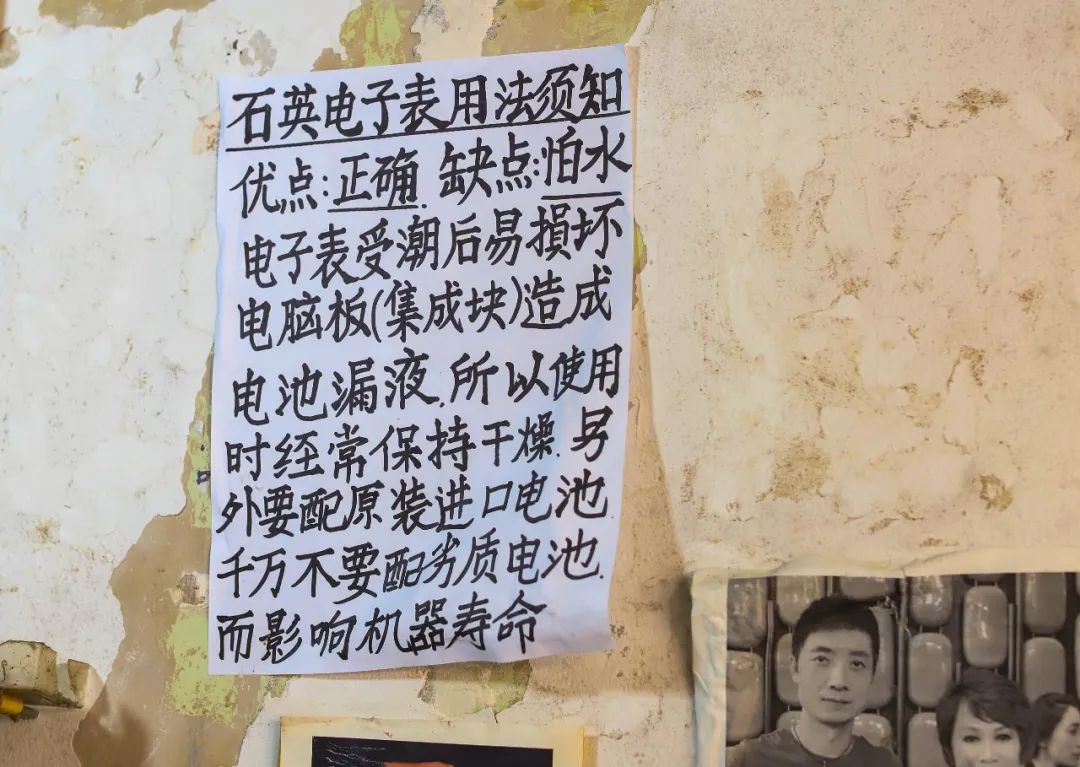 石英电子表用法须知
优点:正确.缺点:怕水
电子表受潮后易損坏
电脑板(集成块)造成
电池漏液.所以使用
时经常保持干燥.另
外要配原装进口电池.
千万不要配劣质电池.
而影响机器寿命